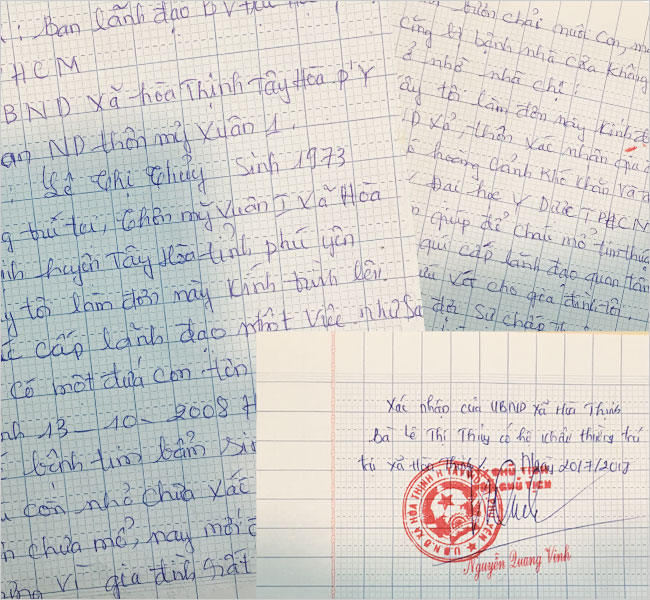 : Ban lãnh đạo BV
HCM
BND Xã hòa Thịnh Tây Hòa P'Y
an ND thôn mỹ Xuân 1.
: Lê Thị Thủy Sinh 1973
g trú tại, thôn mỹ Xuân I Xã Hòa
nh huyện Tây Hòa tỉnh phú yên
y tôi làm đơn này kính trình lên
ác cấp lãnh đạo một việc như sa
có một đứa con tên
nh 13-10-2008
bệnh tim bẩm sin
con nhỏ chưa xác
n chưa mổ, nay mới
vì gia đình rất
bươn chải nuôi con,
cũng bị bệnh nhà cửa không
ở nhờ nhà chị.
ây tôi làm đơn này kính
D Xã, thôn xác nhận gia
hoàng cảnh khó khăn và
Đại học Y Dược TPHCM
giúp để cháu mổ tim
quí cấp lãnh đạo quan tâm
cho gia đình tôi.
đời sự chấp
Xác nhận của UBND xã Hòa Thịnh
Bà Lê Thị Thủy có hộ khẩu thường trú
tại xã Hòa Thịnh/. Ngày 20/7/2017
CHỦ TỊCH
U.B.N.D XÃ HÒA THỊNH H.TÂY HÒA
Nguyễn Quang Vinh